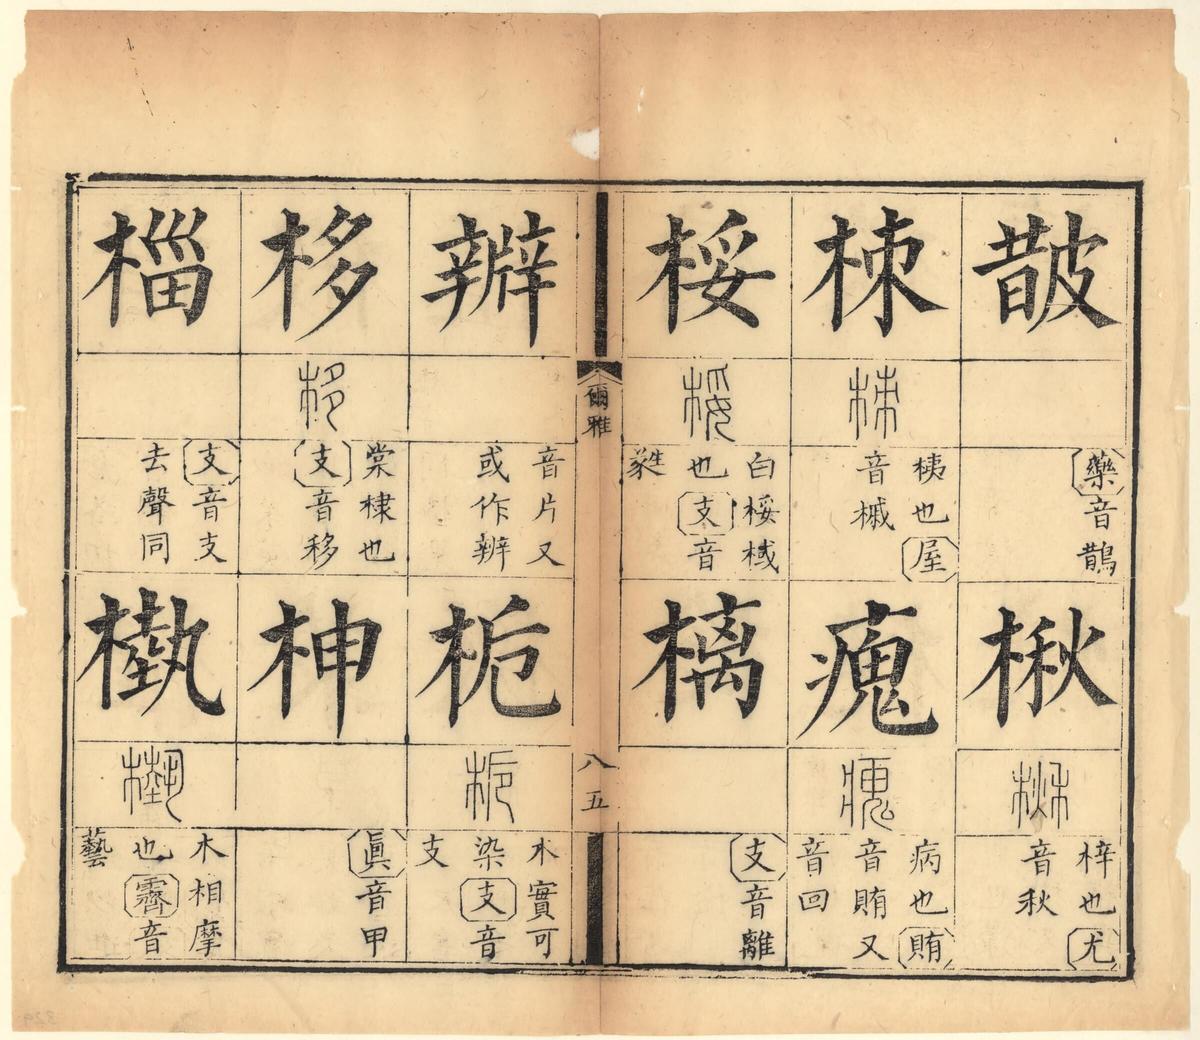 皵
藥音鵲
楸
楸
梓也尤
音秋
梀
梀
桋也屋
音槭
瘣
瘣
病也賄
音賄又
音回
桵
桵
白桵棫
也支音
蕤
樆
支音離
爾雅
八五
辧
音片又
或作辨
栀
栀
木實可
染支音
支
栘
栘
棠棣也
支音移
柛
眞音申
椔
支音支
去聲同
槸
槸
木相摩
也霽音
藝